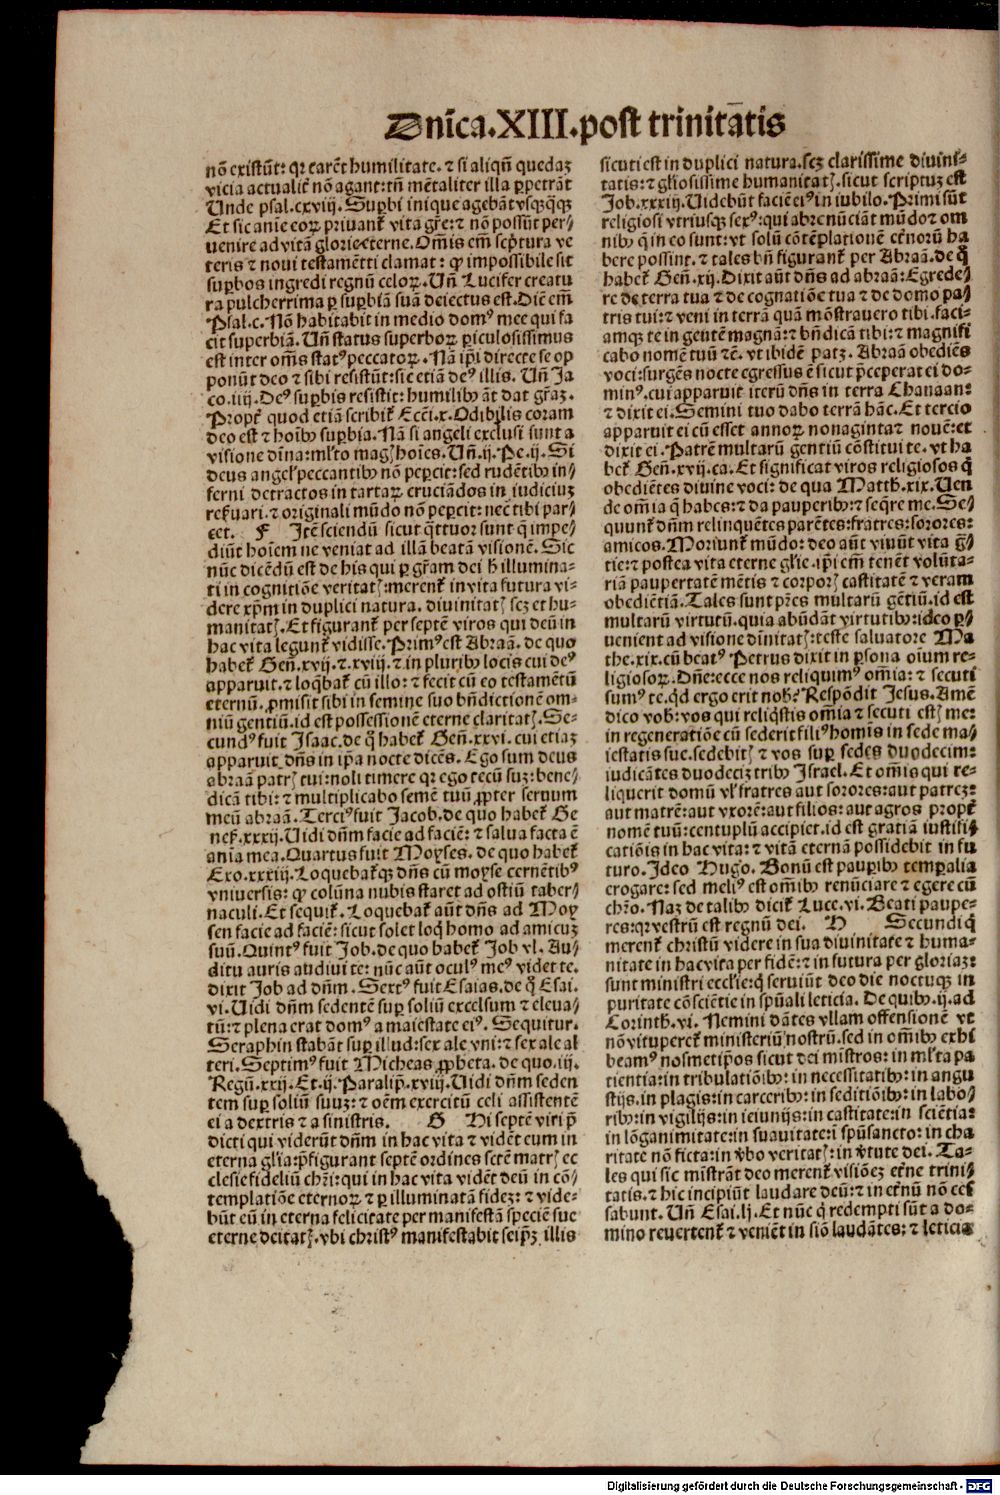 Dnīca.XIII.post trinitatis
nō existūt: qr carēt humilitate. ⁊ si aliqn̄ quedaꝫ
vicia actualiť nō agant: tn̄ mētaliter illa ꝑpetrāt
Unde psal.cxviij. Suꝑbi inique agebāt vsqꝫqꝗqꝫ
Et sic anie eoꝝ priuant᷑ vita gr̄e: ⁊ nō possūt per/
uenire ad vitā glorie eterne. Om̄is em̄ scp̄tura ve
teris ⁊ noui testamētti clamat: ꝙ impossibile sit
suꝑbos ingredi regnū celoꝝ. Un̄ Lucifer creatu
ra pulcherrima ꝑ suꝑbiā suā deiectus est. Diē em̄
Psal.c. Nō habitabit in medio domꝰ mee qui fa
cit superbiā. Un̄ status superboꝝ ꝑiculosissimus
est inter om̄s statꝰ peccatoꝝ. Nā ip̄i directe se op
ponūt deo ⁊ sibi resistūt: sic etiā deꝰ illis. Un̄ Ja
co.iiij. Deꝰ suꝑbis resistit: humilibꝫ āt dat gr̄aꝫ.
Propt᷑ quod etiā scribit᷑ Ecc̄i.x. Odibilis coram
deo est ⁊ hoībꝫ suꝑbia. Nā si angeli exclusi sunt a
visione dīna: ml̄to magꝭ hoīes. Un̄.ij.Pe.ij. Si
deus angelꝭ peccantibꝫ nō peꝑcit: sed rudētibꝫ in/
ferni detractos in tartaꝝ cruciādos in iudiciuꝫ
reẜuari. ⁊ originali mūdo nō peꝑcit: nec̄ tibi par/
cet. F Itē sciendū sicut qͣttuor sunt q̄ impe/
diūt hoīem ne veniat ad illā beatā visionē. Sic
nūc dicēdū est de his qui ꝑ gr̄am dei h̄ illumina-
ti in cognitiōe veritatꝭ: merent᷑ in vita futura vi-
dere xp̄m in duplici natura. diuinitatꝭ scꝫ et hu-
manitatꝭ. Et figurant᷑ per septē viros qui deū in
hac vita legunt᷑ vidisse. Primꝰ est Abraā. de quo
habet᷑ Gen̄.xvij.⁊.xviij.⁊ in pluribꝫ locis cui deꝰ
apparuit. ⁊ loq̄bat᷑ cū illo: ⁊ fecit cū eo testamētū
eternū. ꝓmisit sibi in semine suo bn̄dictionē om-
niū gentiū. id est possessionē eterne claritatꝭ. Se-
cundꝰ fuit Isaac. de q̄ habet᷑ Gen̄.xxvi. cui etiaꝫ
apparuit dn̄s in ip̄a nocte dicēs. Ego sum deus
abraā patrꝭ tui: noli timere qr ego tecū suꝫ: bene/
dicā tibi: ⁊ multiplicabo semē tuū ꝓpter seruum
meū abraā. Tercꝰ fuit Jacob. de quo habet᷑ Ge
neẜ.xxxij. Uidi dn̄m facie ad faciē: ⁊ salua facta ē
anīa mea. Quartus fuit Moyses. de quo habet᷑
Exo.xxxiij. Loquebat᷑qꝫ dn̄s cū moyse cernētibꝰ
vniuersis: ꝙ colūna nubis staret ad ostiū taber/
naculi. Et sequit᷑. Loquebat᷑ aūt dn̄s ad Moy
sen facie ad faciē: sicut solet loq̄ homo ad amicuꝫ
suū. Quintꝰ fuit Job. de quo habet᷑ Job vl. Au/
ditu auris audiui te: nūc aūt oculꝰ meꝰ videt te.
dixit Job ad dn̄m. Sextꝰ fuit Esaias. de q̄ Esai.
vi. Uidi dn̄m sedentē suꝑ soliū excelsum ⁊ eleua/
tū: ⁊ plena erat domꝰ a maiestate eiꝰ. Sequitur.
Seraphin stabāt suꝑ illud: sex ale vni: ⁊ sex ale al
teri. Septimꝰ fuit Micheas ꝓpheta. de quo.iij.
Regū.xxij. Et.ij. Paralip̄.xviij. Uidi dn̄m seden
tem suꝑ soliū suuꝫ: ⁊ oēm exercitū celi assistentē
ei a dextris ⁊ a sinistris. G Hi septē viri p̄
dicti qui viderūt dn̄m in hac vita ⁊ vidēt eum in
eterna gl̄ia: p̄figurant septē ordines scē matrꝭ ec
clesie fideliū chr̄i: qui in hac vita vidēt deū in cō/
templatiōe eternoꝝ ⁊ ꝑ illuminatā fideꝫ: ⁊ vide-
būt eū in eterna felicitate per manifestā speciē sue
eterne deitatꝭ. vbi christꝰ manifestabit seip̄ꝫ illis
sicuti est in duplici natura. scꝫ clarissime diuini-
tatis: ⁊ gl̄iosissime humanitatꝭ. sicut scriptuꝫ est
Job.xxxiij. Uidebūt faciē eiꝰ in iubilo. Primi sūt
religiosi vtriusqꝫ sexꝰ: qui abrenūciāt mūdo ⁊ om
nibꝫ q̄ in eo sunt: vt solū cōtēplationē et̄norū ha
bere possint. ⁊ tales bn̄ figurant᷑ per Abraā. de q̄
habet᷑ Gen̄.xij. Dixit aūt dn̄s ad abraā: Egrede/
re de terra tua ⁊ de cognatiōe tua ⁊ de domo pa/
tris tui: ⁊ veni in terrā quā mōstrauero tibi. faci-
amqꝫ te in gentē magnā: ⁊ bn̄dicā tibi: ⁊ magnifi
cabo nomē tuū ⁊c̄. vt ibidē patꝫ. Abraā obediēs
voci: surgēs nocte egressus ē sicut p̄ceperat ei do-
minꝰ. cui apparuit iterū dn̄s in terra Chanaan:
⁊ dixit ei. Semini tuo dabo terrā hāc. Et tercio
apparuit ei cū esset annoꝝ nonaginta ⁊ nouē: et
dixit ei. Patrē multarū gentiū cōstitui te. vt ha
bet᷑ Gen̄.xvij.ca. Et significat viros religiosos q̄
obediētes diuine voci: de qua Matth.xix. Uen
de om̄ia q̄ habes: ⁊ da pauperibꝫ: ⁊ seq̄re me. Se/
quunt᷑ dn̄m relinquētes parētes: fratres: sorores:
amicos. Moriunt᷑ mūdo: deo aūt viuūt vita gr̄/
tie: ⁊ postea vita eterne gl̄ie. ip̄i em̄ tenēt volūta-
riā paupertatē mētis ⁊ corporꝭ castitatē ⁊ veram
obediētiā. Tales sunt pr̄es multarū gētiū. id est
multarū virtutū. quia abūdāt virtutibꝫ: ideo ꝑ/
uenient ad visione dīnitatꝭ: teste saluatore Ma
the.xix. cū beatꝰ Petrus dixit in ꝑsona oīum re-
ligiosoꝝ. Dn̄e: ecce nos reliquimꝰ om̄ia: ⁊ secuti
sumꝰ te. qͥd ergo erit nobꝭ? Respōdit Jesus. Amē
dico vobꝭ: vos qui reliqͥstis om̄ia ⁊ secuti estꝭ me:
in regeneratiōe cū sederit filiꝰ hominis in sede ma/
iestatis sue. sedebitꝭ ⁊ vos suꝑ sedes duodecim:
iudicātes duodeciꝫ tribꝫ Israel. Et om̄is qui re-
liquerit domū vl̄ fratres aut sorores: aut patreꝫ:
aut matrē: aut vxorē: aut filios: aut agros propt᷑
nomē tuū: centuplū accipiet. id est gratiā iustifi/
catiōis in hac vita: ⁊ vitā eternā possidebit in fu
turo. Ideo Hugo. Bonū est pauꝑibꝫ temꝑalia
erogare: sed meliꝰ est om̄ibꝫ renūciare ⁊ egere cū
chr̄o. Naꝫ de talibꝫ dicit᷑ Luce.vi. Beati paupe-
res: qr vestrū est regnū dei. H Secundi q̄
merent᷑ christū videre in sua diuinitate ⁊ huma-
nitate in hac vita per fidē: ⁊ in futura per gloriaꝫ:
sunt ministri eccl̄ie: q̄ seruiūt deo die noctuqꝫ in
puritate cōsciētie in spūali leticia. De quibꝫ.ij.ad
Corinth.vi. Nemini dātes vllam offensionē vt
nō vitupereť ministeriū nostrū. sed in om̄ibꝫ exhi
beamꝰ nosmetip̄os sicut dei mīstros: in ml̄ta pa
tientia: in tribulatiōibꝫ: in necessitatibꝫ: in angu
stijs. in plagis: in carceribꝫ: in seditiōibꝫ: in labo/
ribꝫ: in vigilijs: in ieiunijs: in castitate: in sciētia:
in lōganimitate: in suauitate: ī spūsancto: in cha
ritate nō ficta: in v̄bo veritatꝭ: in v̄tute dei. Ta-
les qui sic mīstrāt deo merent᷑ visiōeꝫ et̄ne trini/
tatis. ⁊ hic incipiūt laudare deū: ⁊ in et̄nū nō ces
sabunt. Un̄ Esai.lj. Et nūc q̄ redempti sūt a do-
mino reuertent᷑ ⁊ veniēt in siō laudātes: ⁊ leticia
Digitalisierung gefördert durch die Deutsche Forschungsgemeinschaft - DFG